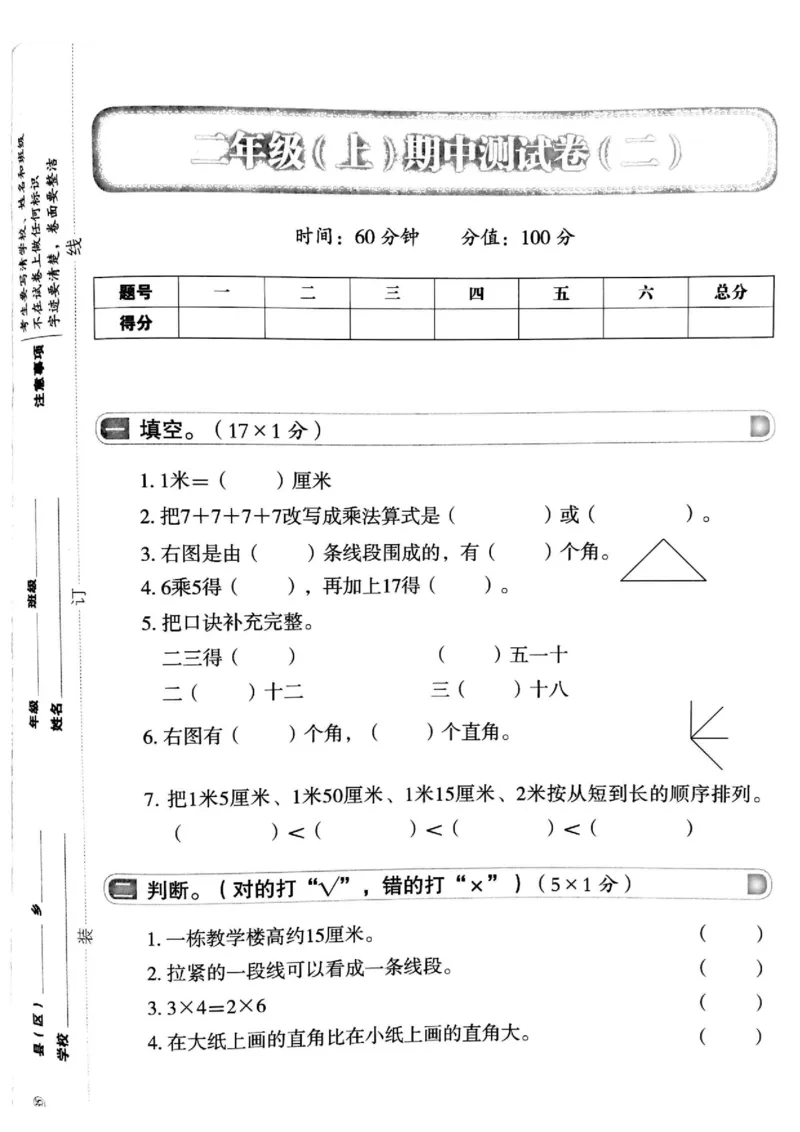 二年级(上)期中测试卷(二)
时间：60分钟 分值：100分
题号 一 二 三 四 五 六 总分
得分
一 填空。(17×1分)
1. 1米＝( )厘米
2. 把7＋7＋7＋7改写成乘法算式是( )或( )。
3. 右图是由( )条线段围成的，有( )个角。
4. 6乘5得( )，再加上17得( )。
5. 把口诀补充完整。
二三得( ) ( )五一十
二( )十二 三( )十八
6. 右图有( )个角，( )个直角。
7. 把1米5厘米、1米50厘米、1米15厘米、2米按从短到长的顺序排列。
( )＜( )＜( )＜( )
二 判断。(对的打“√”，错的打“×”)(5×1分)
1. 一栋教学楼高约15厘米。 ( )
2. 拉紧的一段线可以看成一条线段。 ( )
3. 3×4=2×6 ( )
4. 在大纸上画的直角比在小纸上画的直角大。 ( )
考生要写清学校、姓名和班级
不在试卷上做任何标识
字迹要清楚，卷面要整洁
注意事项
班级
年级
姓名
乡
县(区)
学校
线
订
装